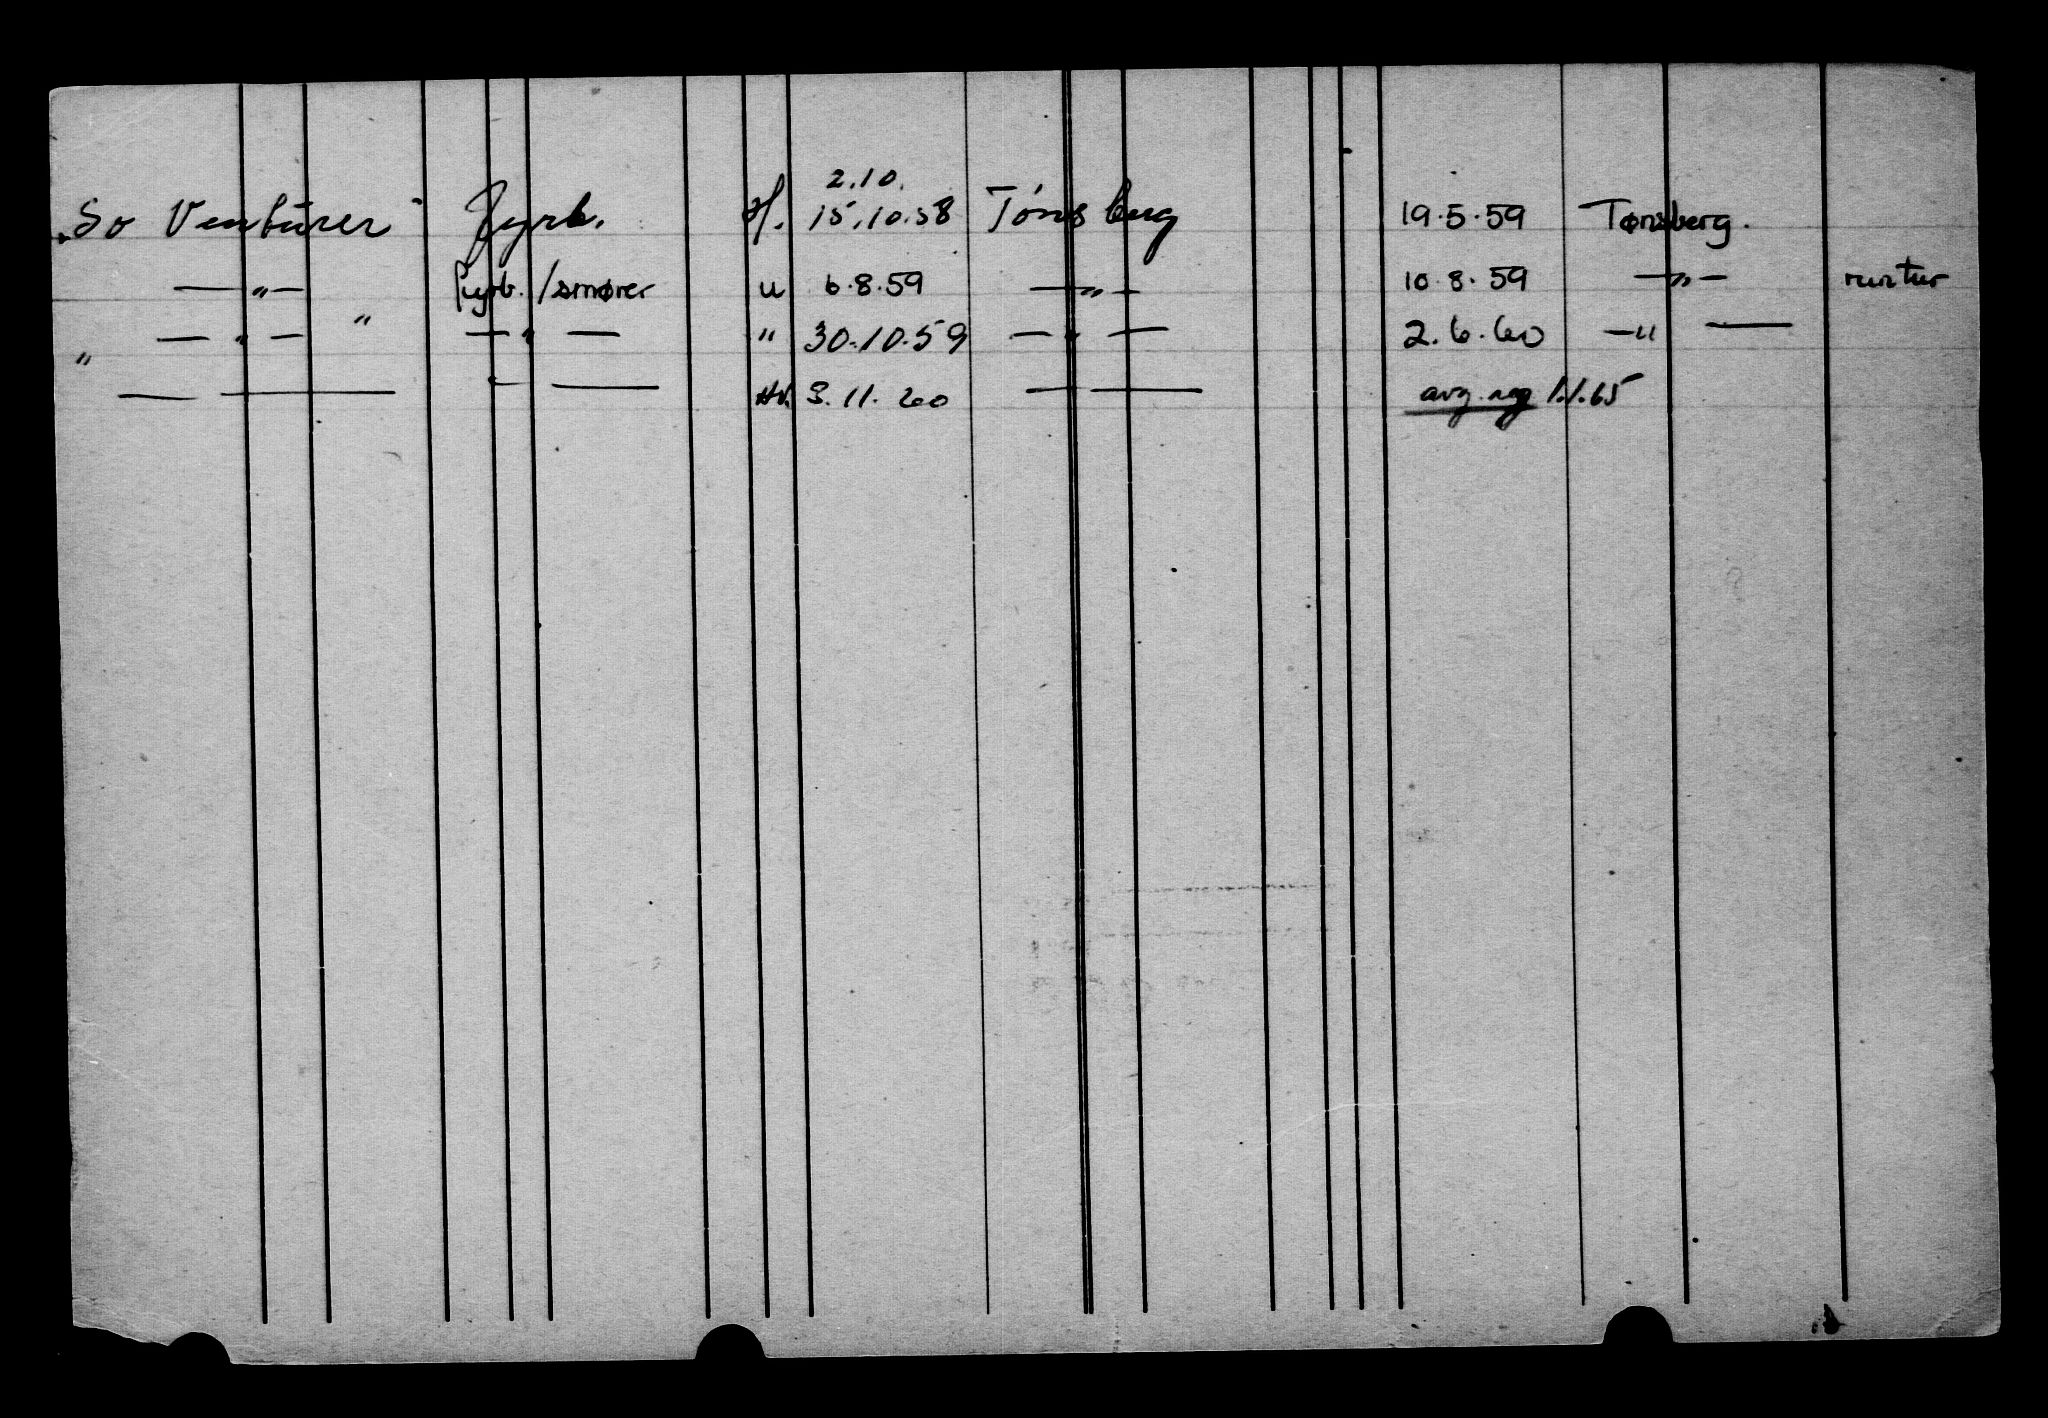 2.10.
„So Venturer" Fyrb. H. 15.10.58 Tönsberg 19.5.59 Tønsberg.
—„— fyrb./smører u 6.8.59 —„— 10.8.59 —„— runtur
—„— " —"— " 30.10.59 —"— 2.6.60 —"—
" —— —— —— 3.11.60 —— avg. reg 1.1.65